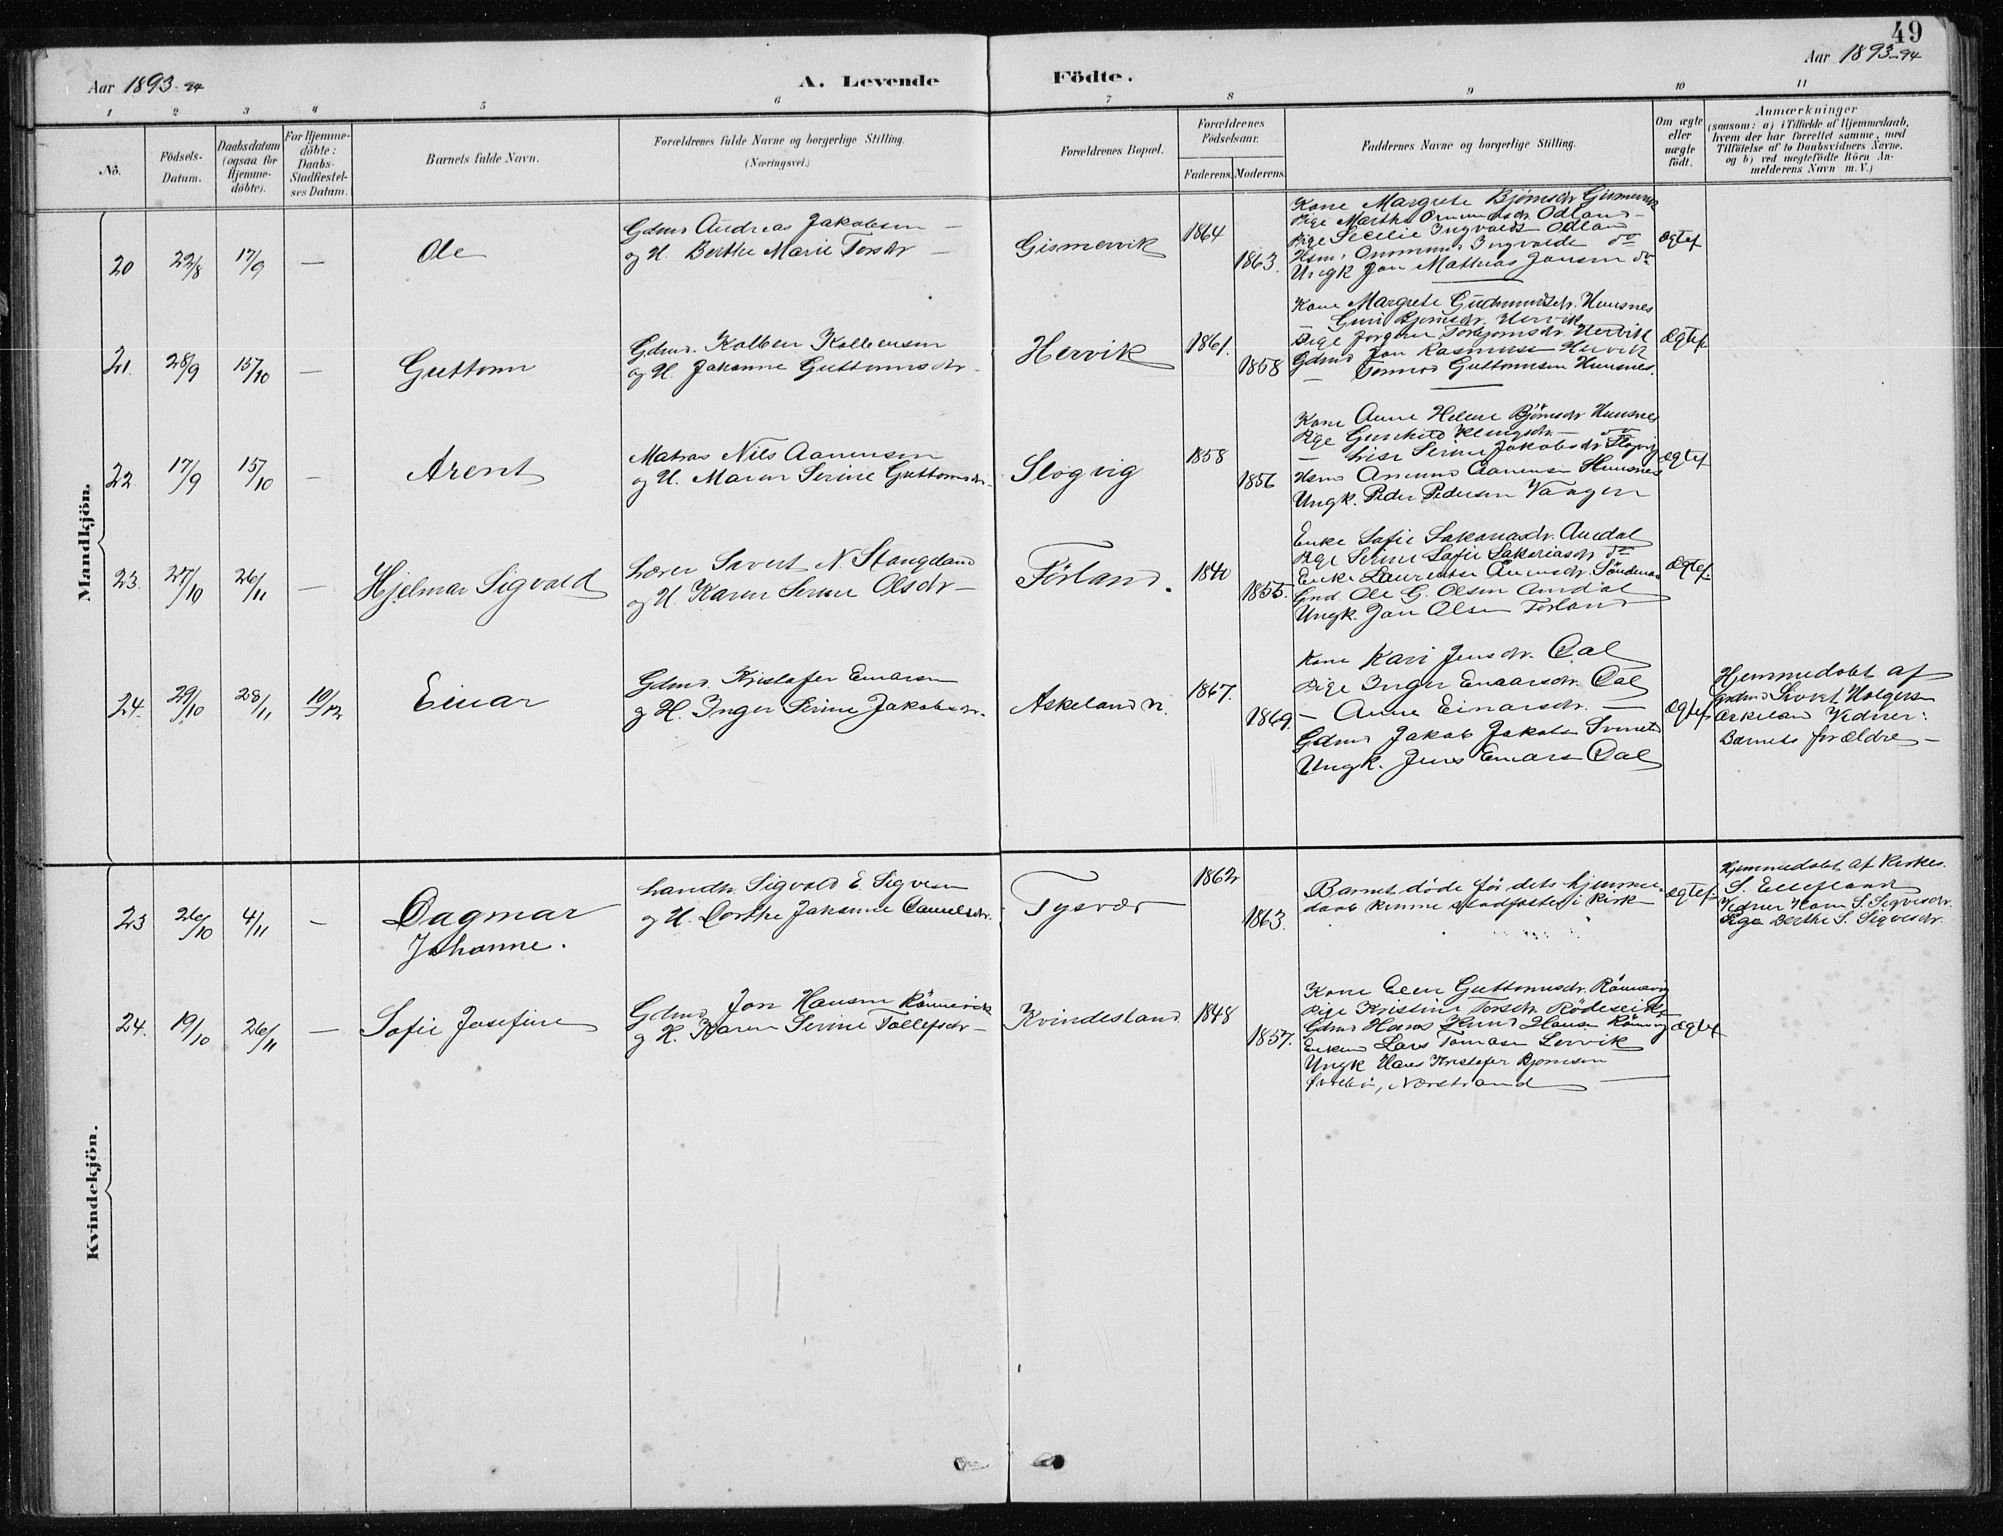 49
Aar 1893-94
A. Levende Födte.
Aar 1893-94
1 2 3 4 5 6 7 8 9 10 11
No.
Födsels-Datum.
Daabsdatum (ogsaa for Hjemme-döbte).
For Hjemme-döbte: Daabs-Stadfæstel-ses Datum.
Barnets fulde Navn.
Forældrenes fulde Navne og borgerlige Stilling.
(Næringsvei.)
Forældrenes Bopæl.
Forældrenes Födselsaar.
Faderens. Moderens.
Faddernes Navne og borgerlige Stilling.
Om ægte eller uægte födt.
Anmærkninger
(saasom: a) i Tilfælde af Hjemmedaab, hvem der har forrettet samme, med Tilföielse af to Daabsvidners Navne, og b) ved uægtefödte Börn Anmelderens Navn m. V.)
Mandkjön.
20 22/8 17/9 — Ole
Gdmd Andreas Jakobsen —
og H. Berthe Marie Torsdr —
Gismervik 1864 1863.
Kone Margrete Bjørnsdr Gismervik
Pige Marthe Omundsdr. Odland —
Pige Secilie Ingvaldsdr Odland
Hsm. Ommund Ingvaldse do
Ungk Jon Mathias Jonsen do
Ægtef
21. 28/9 15/10 — Guttorm
Gdmd. Kolben Kolbensen
og H. Johanne Guttormsdr.
Hervik 1861. 1858
Kone Margrete Gudmundsdr. Huusnes
— Guri Bjørnsdr. Hervik
Pige Jorgine Torbjørnsdr. Hervik
Gdmd Jon Rasmusse Hervik
— Tormod Guttormsen Huusnes.
Ægtef
22 17/9 15/10 — Arent
Matros Nils Aanensen
og H. Maren Serine Guttormsdr.
Slogvig 1858 1856
Kone Anne Helene Bjørnsdr Huusnes
Pige Gunhild — do
— Lise Serine Jakobsdr Slogvig
Hsmd Omund Aanensen Huusnes
Ungk. Peder Pedersen Vaagen
Ægtef
23. 27/10 26/11 — Hjelmar Sigvald
Lærer Sivert N. Stangeland
og H. Karen Serine Olsdr —
Førland. 1840 1855.
Enke Sofie Sakariasdr. Amdal
Pige Serine Sofie Sakariasdr do
Enke Laurentse
Gmd. Ole G. Olsen Amdal
Ungk. Jon Olsen Førland
Ægtef
24. 29/10 28/11 10/12 Einar
Gdmd. Kristofer Einarsen
og H. Inger Serine Jakobsdr.
Askeland n. 1867. 1869
Kone Kari Jensdr. Dal
Pige Inger Einarsdr. Dal
— Anne Einarsdr. —
Gdmd Jakob Jakobsen
Ungk. Jens Einarsen Dal
Ægtef
Hjemmedøbt af
Gdmd Sivert Holgersen
Askeland Vidner:
Barnets forældre —
Kvindekjön.
23 26/10 4/11 — Dagmar
Johanne.
Landh. Sigvald E. Sigvesen
og H. Dorthe Johanne Danielsdr.
Tysvær 1862 1863.
Barnet døde før dets hjemme-
daab kunne stadfæstes i kirk
Ægtef.
Hjemmedøbt af Kirkes.
S. Ellefland
Vidner S. Sigvesdr.
Pige Berthe S. Sigvesdr.
24. 19/10 26/11 — Sofie Josefine
Gdmd Jon Hansen Rönnevik
og H. Karen Serine Tollefsdr —
Kvindesland 1848 1857.
Kone Elen Guttormsdr. Rönnevig
Pige Kristine Torsdr. Rödeseike
Gdmd Hans Knud Hansen Rönnevig
Enkem Lars Tomasen Lervik
Ungk Hans Kristofer Bjornsen
, Nærstrand —
Ægtef